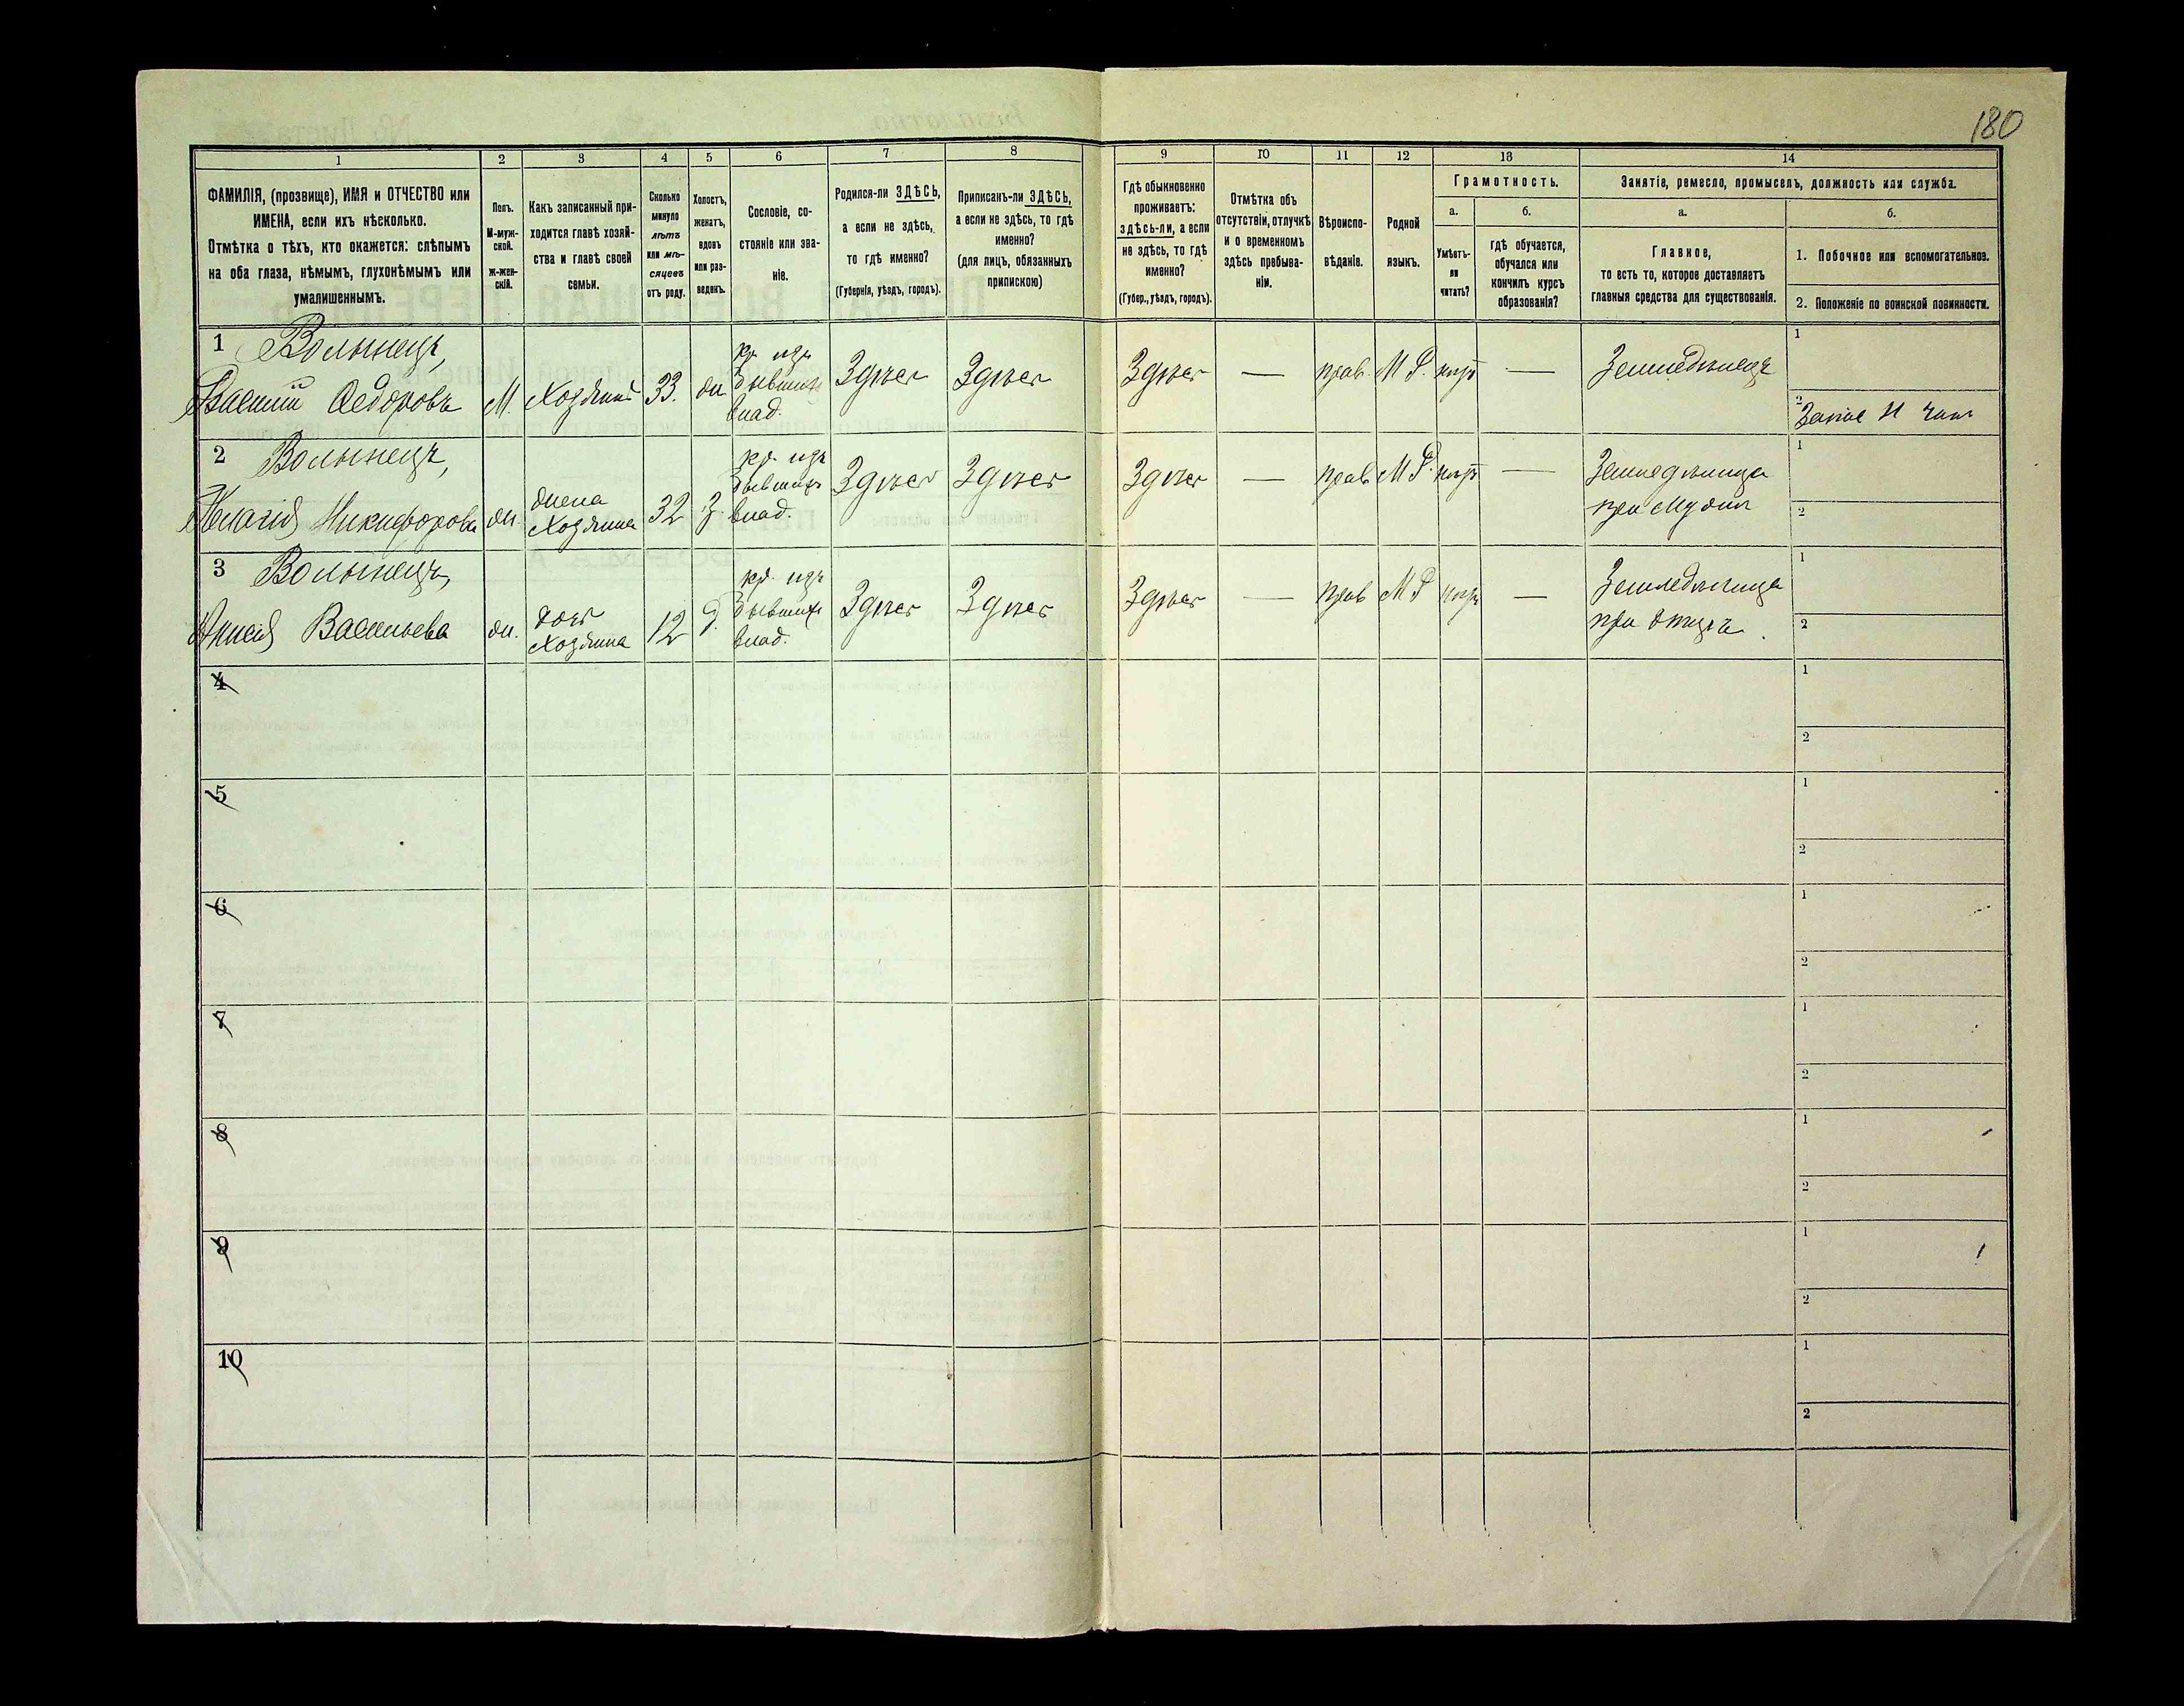 180
1
2
3
4
5
6
7
8
9
10
11
12
13
14
ФАМИЛІЯ, (прозвище), ИМЯ и ОТЧЕСТВО или
ИМЕНА, если ихъ нѣсколько.
Отмѣтка о тѣхъ, кто окажется: слѣпымъ
на оба глаза, нѣмымъ, глухонѣмымъ или
умалишеннымъ.
Полъ.
М-муж-
ской.
ж-жен-
скій.
Какъ записанный при-
ходится главѣ хозяй-
ства и главѣ своей
семьи.
Сколько
минуло
лѣтъ
или мѣ-
сяцевъ
отъ роду.
Холостъ,
женатъ,
вдовъ
или раз-
веденъ.
Сословіе, со-
стояніе или зва-
ніе.
Родился-ли ЗДѢСЬ,
а если не здѣсь,
то гдѣ именно?
(Губернія, уѣздъ, городъ).
Приписанъ-ли ЗДѢСЬ,
а если не здѣсь, то гдѣ
именно?
(для лицъ, обязанныхъ
припискою)
Гдѣ обыкновенно
проживаетъ:
здѣсь-ли, а если
не здѣсь, то гдѣ
именно?
(Губер., уѣздъ, городъ).
Отмѣтка объ
отсутствіи, отлучкѣ
и о временномъ
здѣсь пребыва-
ніи.
Вѣроиспо-
вѣданіе.
Родной
языкъ.
Грамотность.
а.
Умѣетъ-
ли
читать?
б.
гдѣ обучается,
обучался или
кончилъ курсъ
образованія?
Занятіе, ремесло, промыселъ, должность или служба.
а.
Главное,
то есть то, которое доставляетъ
главныя средства для существованія.
б.
1. Побочное или вспомогательное.
2. Положеніе по воинской повинности.
1 Волынецъ,
Василій Федоровъ
М.
Хозяинъ
33.
ж
кр. изъ
бывших
влад.
Здѣсь
Здѣсь
Здѣсь
—
прав.
М Р.
нѣтъ
—
Земледѣлецъ
1
2
2 Волынецъ,
Пелагія Никифорова
ж.
жена
хозяина
32
З.
кр. изъ
бывшихъ
влад.
Здѣсь
Здѣсь
Здѣсь
—
прав
М Р.
нѣтъ
—
Земледѣлица
при мужѣ
1
2
3 Волынецъ,
Васильева
ж.
дочь
хозяина
12
Д.
кр. изъ
бывших
влад.
Здѣсь
Здѣсь
Здѣсь
—
прав
М Р
нѣтъ
—
Земледѣлица
при отцѣ.
1
2
4
1
2
5
1
2
6
1
2
7
1
2
8
1
2
9
1
2
10
1
2